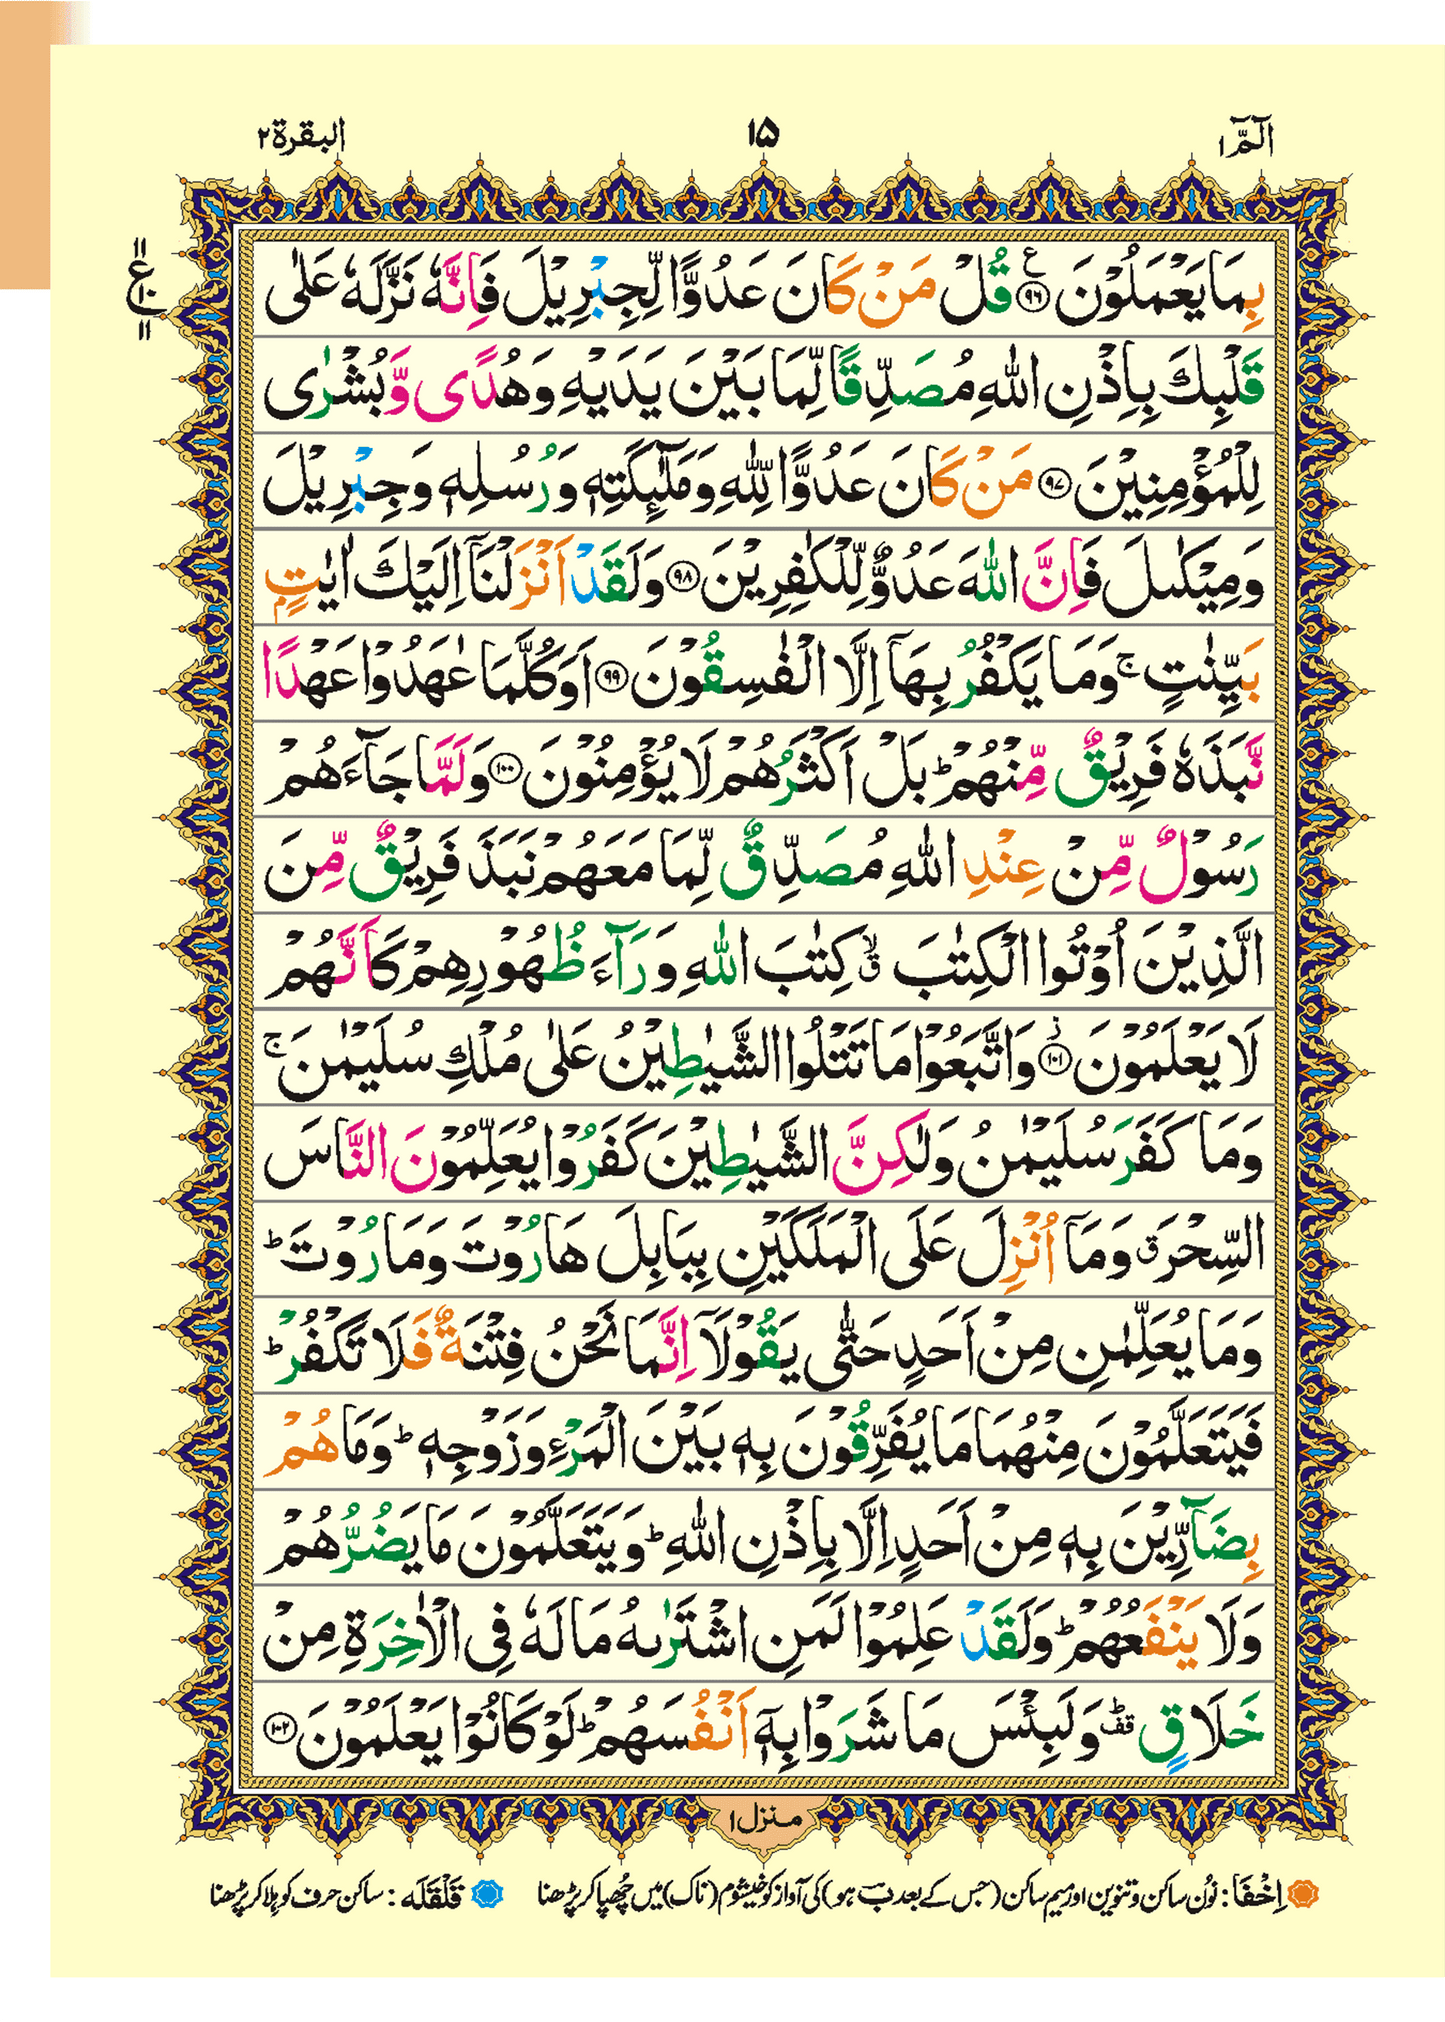 الٓمّٓ ١
١٥
البقرة ٢
بِمَا يَعْمَلُوْنَ ۝٩٦ ع قُلْ مَنْ كَانَ عَدُوًّا لِّجِبْرِيْلَ فَاِنَّهٗ نَزَّلَهٗ عَلٰى
قَلْبِكَ بِاِذْنِ اللّٰهِ مُصَدِّقًا لِّمَا بَيْنَ يَدَيْهِ وَهُدًى وَّبُشْرٰى
لِلْمُؤْمِنِيْنَ ۝٩٧ مَنْ كَانَ عَدُوًّا لِّلّٰهِ وَمَلٰٓئِكَتِهٖ وَرُسُلِهٖ وَجِبْرِيْلَ
وَمِيْكٰىلَ فَاِنَّ اللّٰهَ عَدُوٌّ لِّلْكٰفِرِيْنَ ۝٩٨ وَلَقَدْ اَنْزَلْنَآ اِلَيْكَ اٰيٰتٍۭ
بَيِّنٰتٍ ۚ وَمَا يَكْفُرُ بِهَآ اِلَّا الْفٰسِقُوْنَ ۝٩٩ اَوَكُلَّمَا عٰهَدُوْا عَهْدًا
نَّبَذَهٗ فَرِيْقٌ مِّنْهُمْ ؕ بَلْ اَكْثَرُهُمْ لَا يُؤْمِنُوْنَ ۝١٠٠ وَلَمَّا جَآءَهُمْ
رَسُوْلٌ مِّنْ عِنْدِ اللّٰهِ مُصَدِّقٌ لِّمَا مَعَهُمْ نَبَذَ فَرِيْقٌ مِّنَ
الَّذِيْنَ اُوْتُوا الْكِتٰبَ ۙۗ كِتٰبَ اللّٰهِ وَرَآءَ ظُهُوْرِهِمْ كَاَنَّهُمْ
لَا يَعْلَمُوْنَ ۝١٠١ ز وَاتَّبَعُوْا مَا تَتْلُوا الشَّيٰطِيْنُ عَلٰى مُلْكِ سُلَيْمٰنَ ۚ
وَمَا كَفَرَ سُلَيْمٰنُ وَلٰكِنَّ الشَّيٰطِيْنَ كَفَرُوْا يُعَلِّمُوْنَ النَّاسَ
السِّحْرَ ۗ وَمَآ اُنْزِلَ عَلَى الْمَلَكَيْنِ بِبَابِلَ هَارُوْتَ وَمَارُوْتَ ؕ
وَمَا يُعَلِّمٰنِ مِنْ اَحَدٍ حَتّٰى يَقُوْلَآ اِنَّمَا نَحْنُ فِتْنَةٌ فَلَا تَكْفُرْ ؕ
فَيَتَعَلَّمُوْنَ مِنْهُمَا مَا يُفَرِّقُوْنَ بِهٖ بَيْنَ الْمَرْءِ وَزَوْجِهٖ ؕ وَمَا هُمْ
بِضَآرِّيْنَ بِهٖ مِنْ اَحَدٍ اِلَّا بِاِذْنِ اللّٰهِ ؕ وَيَتَعَلَّمُوْنَ مَا يَضُرُّهُمْ
وَلَا يَنْفَعُهُمْ ؕ وَلَقَدْ عَلِمُوْا لَمَنِ اشْتَرٰىهُ مَا لَهٗ فِى الْاٰخِرَةِ مِنْ
خَلَاقٍ ؕقف وَلَبِئْسَ مَا شَرَوْا بِهٖٓ اَنْفُسَهُمْ ؕ لَوْ كَانُوْا يَعْلَمُوْنَ ۝١٠٢
منزل ١
اِخْفَا: نُون ساکن و تنوین اور میم ساکن (جس کے بعد ب ہو) کی آواز کو خیشوم (ناک) میں چُھپا کر پڑھنا
قَلْقَلَه: ساکن حرف کو ہلا کر پڑھنا